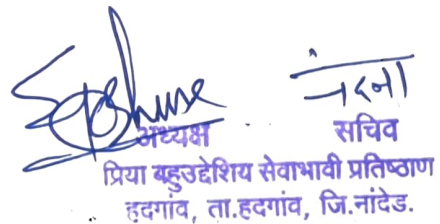 अध्यक्ष सचिव
प्रिया बहुउद्देशिय सेवाभावी प्रतिष्ठाण
हदगांव, ता.हदगांव, जि.नांदेड.